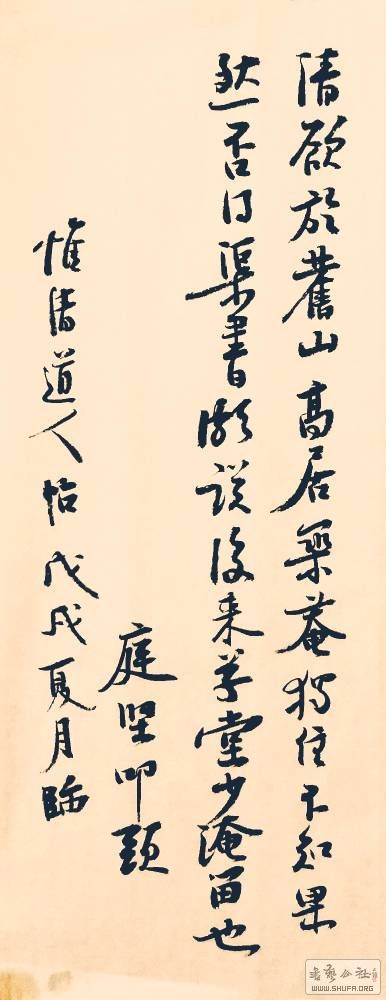 清欲於舊山高居築菴獨住不知果
然否得渠書頗説後來草堂少淹留也
庭堅叩頭
惟清道人帖戊戌夏月臨
WWW.SHUFA.ORG